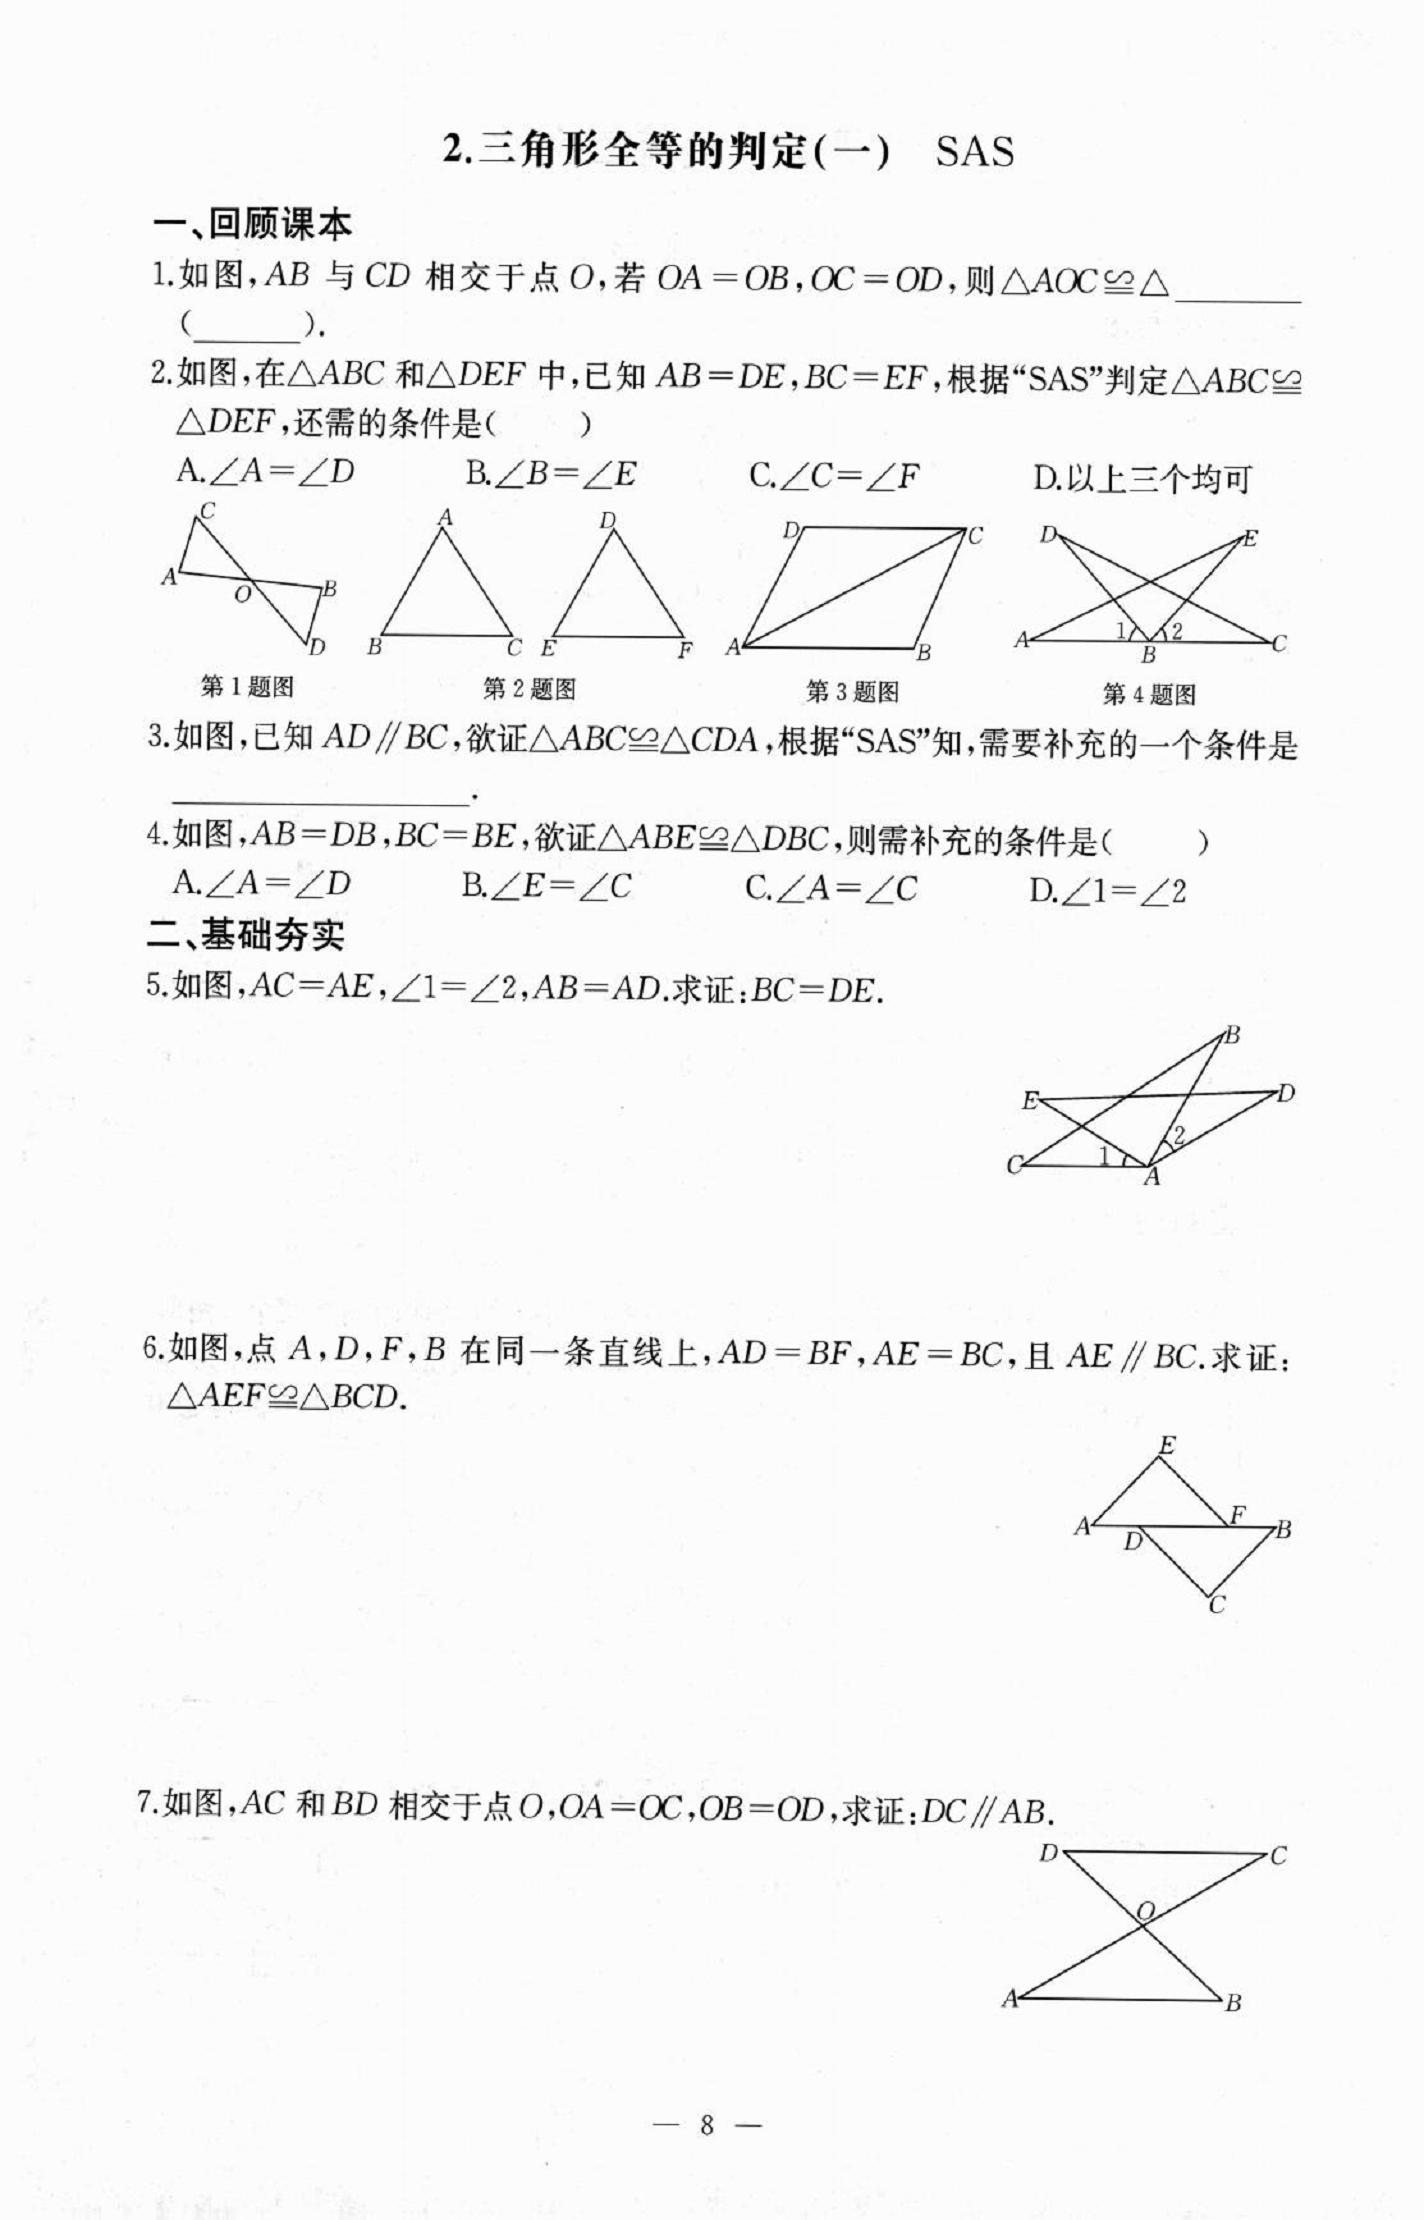 2.三角形全等的判定(一) SAS
一、回顾课本
1.如图,AB 与 CD 相交于点 O,若 OA=OB,OC=OD,则△AOC≌△________
(_______).
2.如图,在△ABC 和△DEF 中,已知 AB=DE,BC=EF,根据“SAS”判定△ABC≌
△DEF,还需的条件是(  )
A.∠A=∠D B.∠B=∠E C.∠C=∠F D.以上三个均可
C
A
O
B
D
A
B
C
D
E
F
D
C
A
B
D
E
A
1
2
B
C
第1题图 第2题图 第3题图 第4题图
3.如图,已知 AD∥BC,欲证△ABC≌△CDA,根据“SAS”知,需要补充的一个条件是
___________________.
4.如图,AB=DB,BC=BE,欲证△ABE≌△DBC,则需补充的条件是(  )
A.∠A=∠D B.∠E=∠C C.∠A=∠C D.∠1=∠2
二、基础夯实
5.如图,AC=AE,∠1=∠2,AB=AD.求证:BC=DE.
B
E
D
2
C
1
A
6.如图,点 A,D,F,B 在同一条直线上,AD=BF,AE=BC,且 AE∥BC.求证:
△AEF≌△BCD.
E
A
D
F
B
C
7.如图,AC 和 BD 相交于点 O,OA=OC,OB=OD,求证:DC∥AB.
D
C
O
A
B
— 8 —